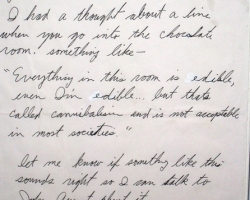 I had a thought about a line
when you go into the chocolate
room! something like—
"Everything in this room is edible,
even I'm edible... but that's
called cannibalism and is not acceptable
in most societies."
let me know if something like this
sounds right so I can talk to
about it